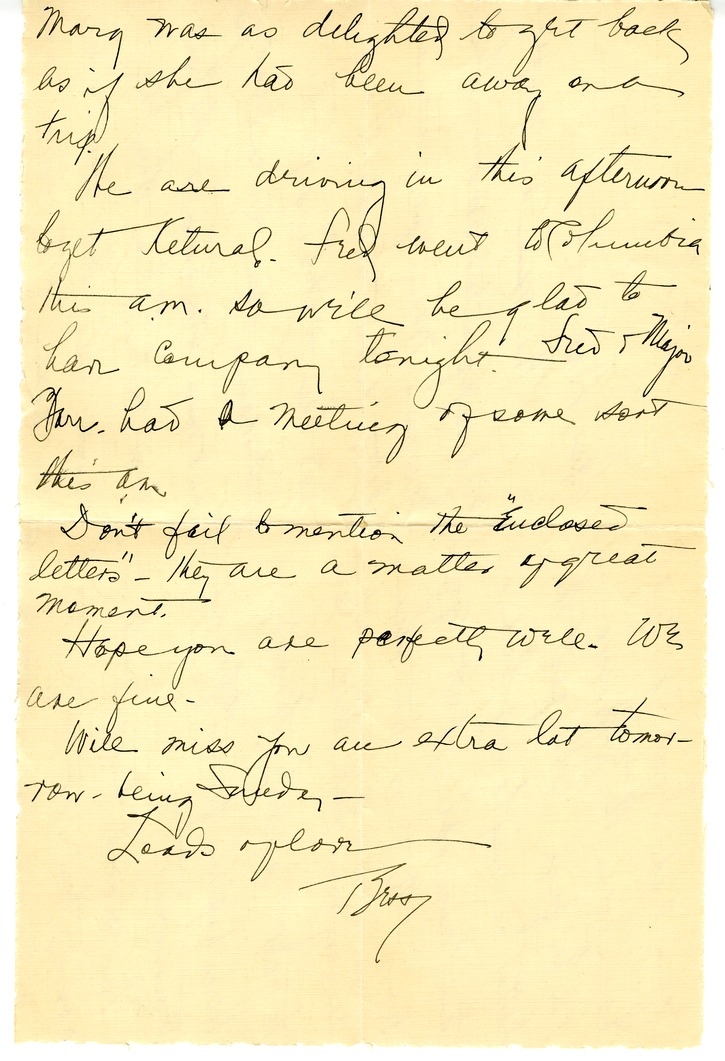 Marg was as delighted to get back
as if she had been away on a
trip.
We are driving in this afternoon
to get Natural. Fred went to Columbia
this a.m. so will be glad to
have company tonight. Fred & Major
had a meeting of some sort
this am
Don't fail to mention the "Enclosed
letters" - they are a matter of great
moment.
Hope you are perfectly well. We
are fine -
Will miss you an extra lot tomor-
row - being Sunday -
Loads of love
Bess